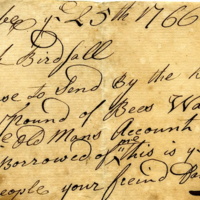 ber ye 25th 1766
Birdsall
se to Send By the h
Pound of Bees Wa
e Old Mans Account
Borrowed of me This is y
eople your freind